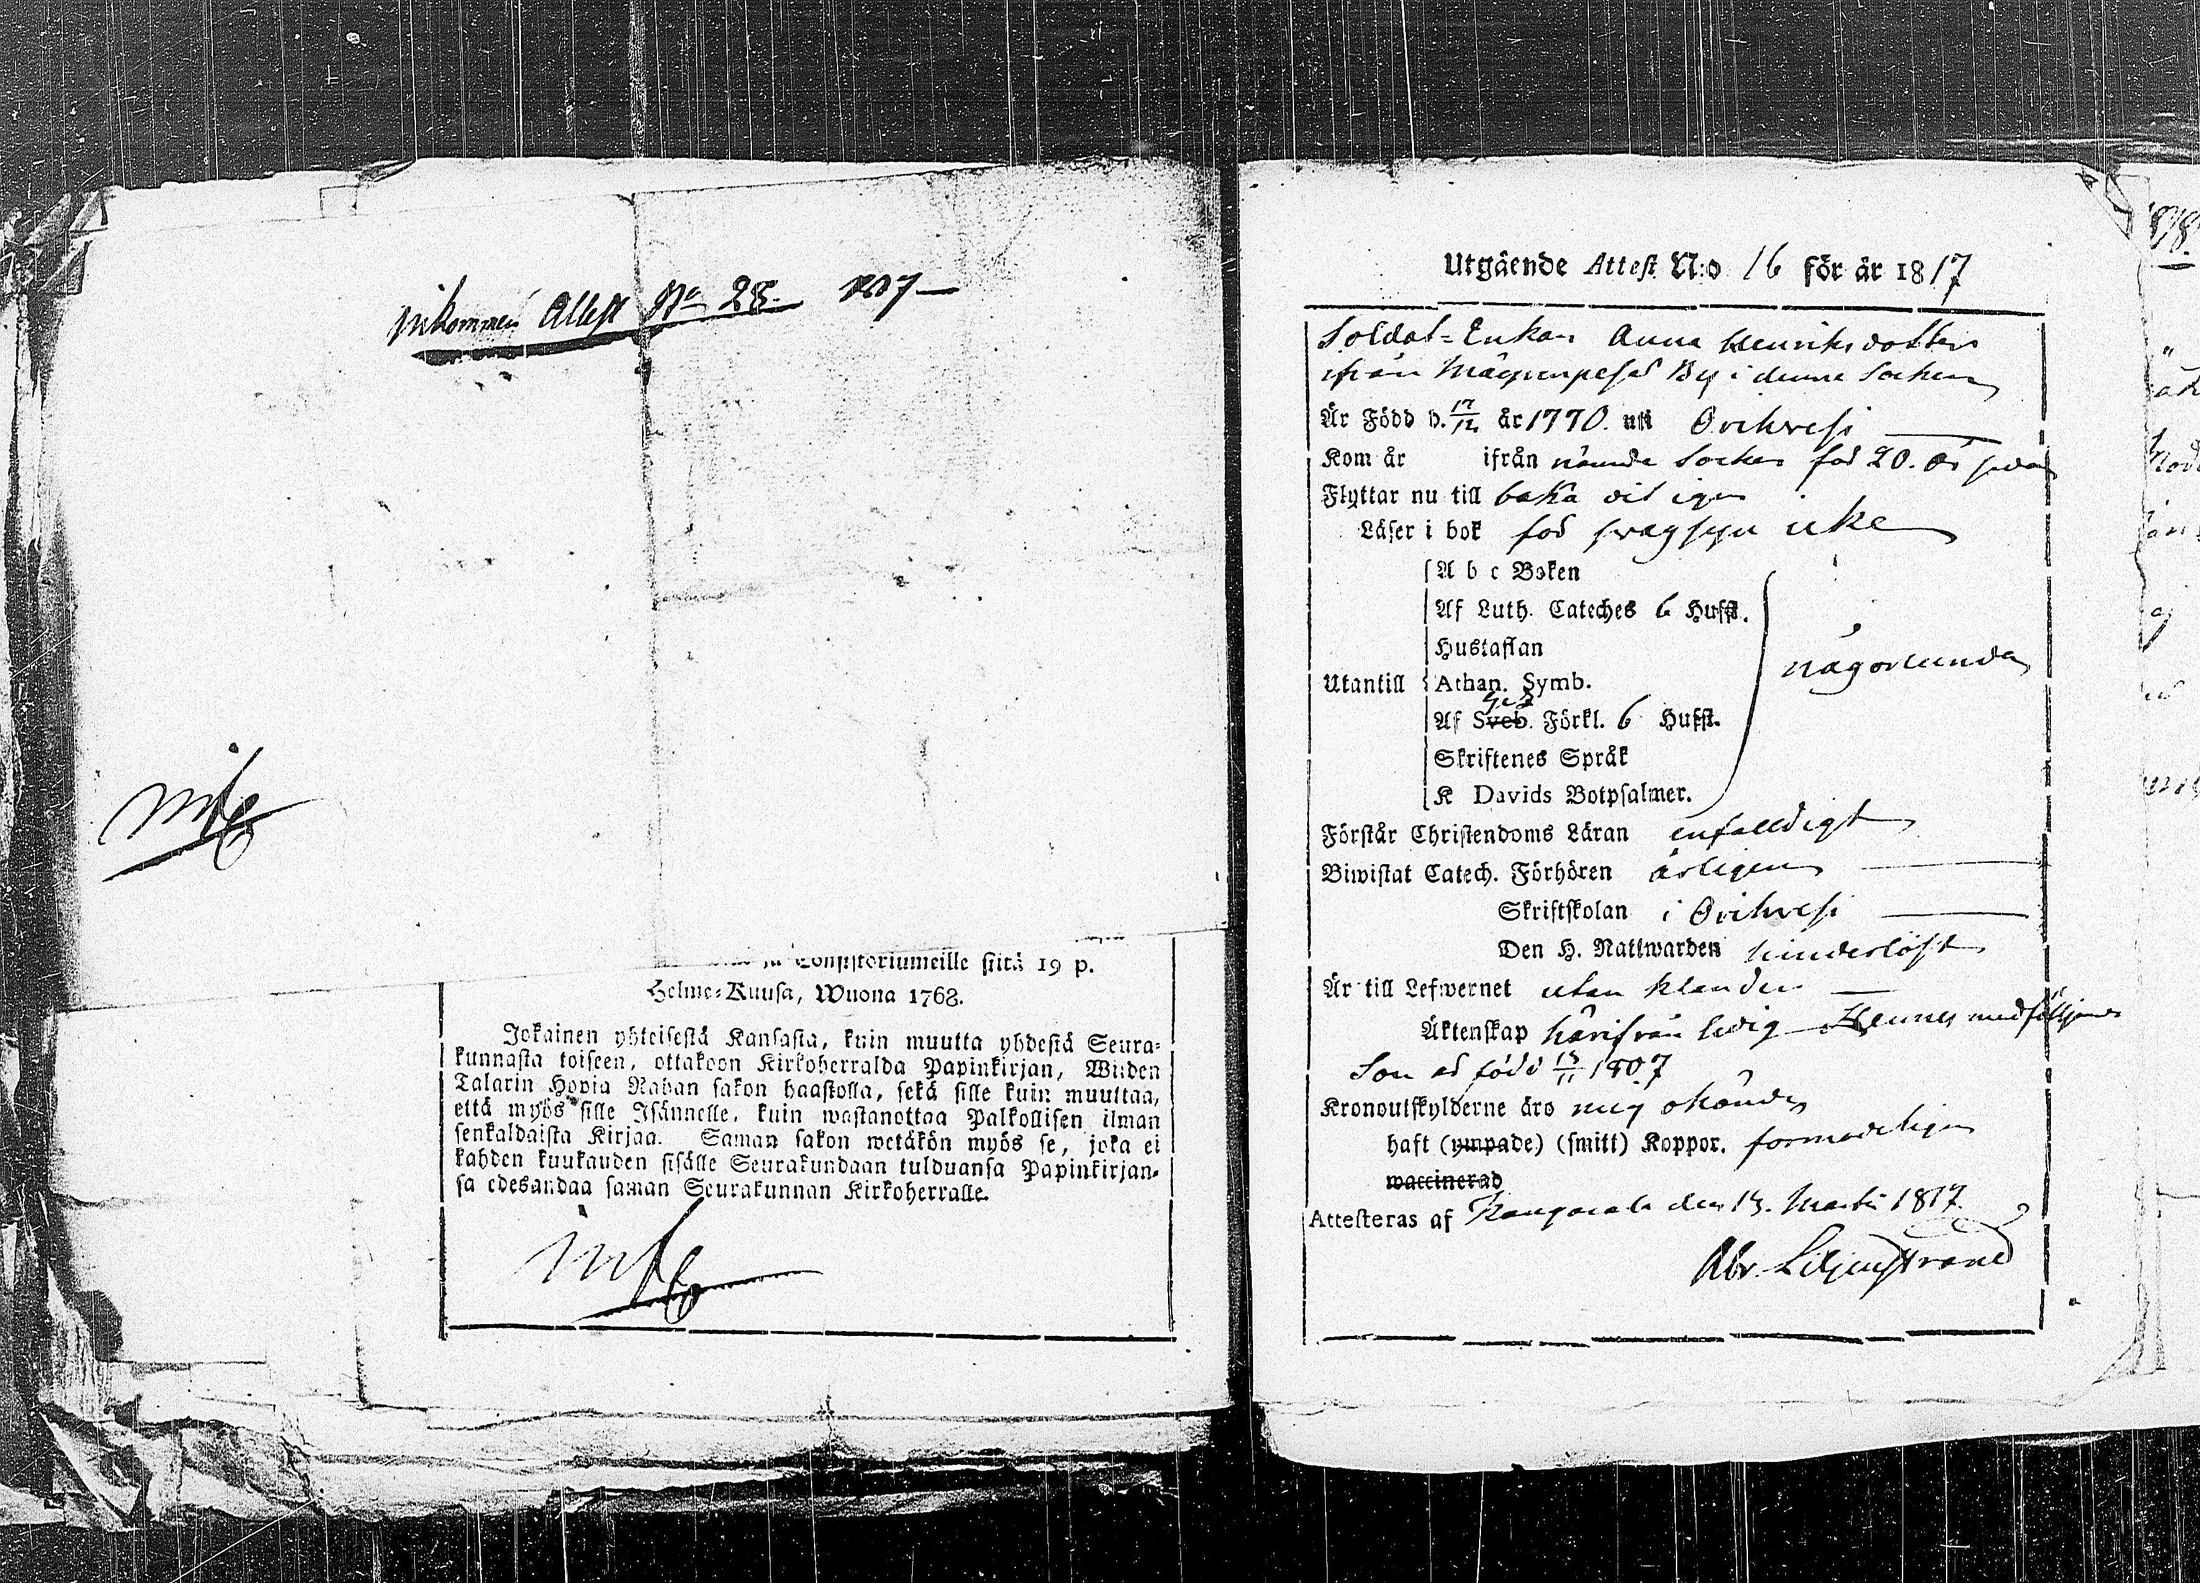 Inkommen Attest No 28. 1817
ja Consistoriumeille siitä 19 p.
Helme-Kuusa, Wuona 1763.
Jokainen yhteisestä Kansasta, kuin muutta yhdestä Seura-
kunnasta toiseen, ottakoon Kirkoherralda Papinkirjan, Wiiden
Talarin Hopia Rahan sakon haastolla, sekä sille kuin muuttaa,
että myös sille Isännelle, kuin wastanottaa Palkollisen ilman
senkaldaista Kirjaa. Saman sakon wetäkön myös se, joka ei
kahden kuukauden sisälle Seurakundaan tulduansa Papinkirjan-
sa edesandaa saman Seurakunnan Kirkoherralle.
Utgående Attest N:o 16 för år 1817
Soldat-Enkan Anna Henriksdotter
ifrån By i denna Socken
Är Född d. 17/12 år 1770. uti Orihvesi
Kom år ifrån nämde Socken för 20. år sedan
Flyttar nu till baka dit igen
Läser i bok för svag syn icke
A b c Boken
Af Luth. Cateches 6 Hufst.
Hustaflan
Utantill Athan. Symb. någorlunda
Af Sveb. Förkl. 6 Hufst.
Skriftenes Språk
K Davids Botpsalmer.
Förstår Christendoms Läran enfalldigt
Biwistat Catech. Förhören årligen
Skriftskolan i Orihvesi
Den H. Nattwarden hinderlöst
Är till Lefwernet utan klander
Äktenskap härifrån ledig Hennes medföljande
Son är född 13/11 1807
Kronoutskylderne äro mig okände
haft (ympade) (smitt) Koppor. förmodeligen
waccinerad
Attesteras af Kangasala den 13. Martii 1817.
Abr. Liljenstrand